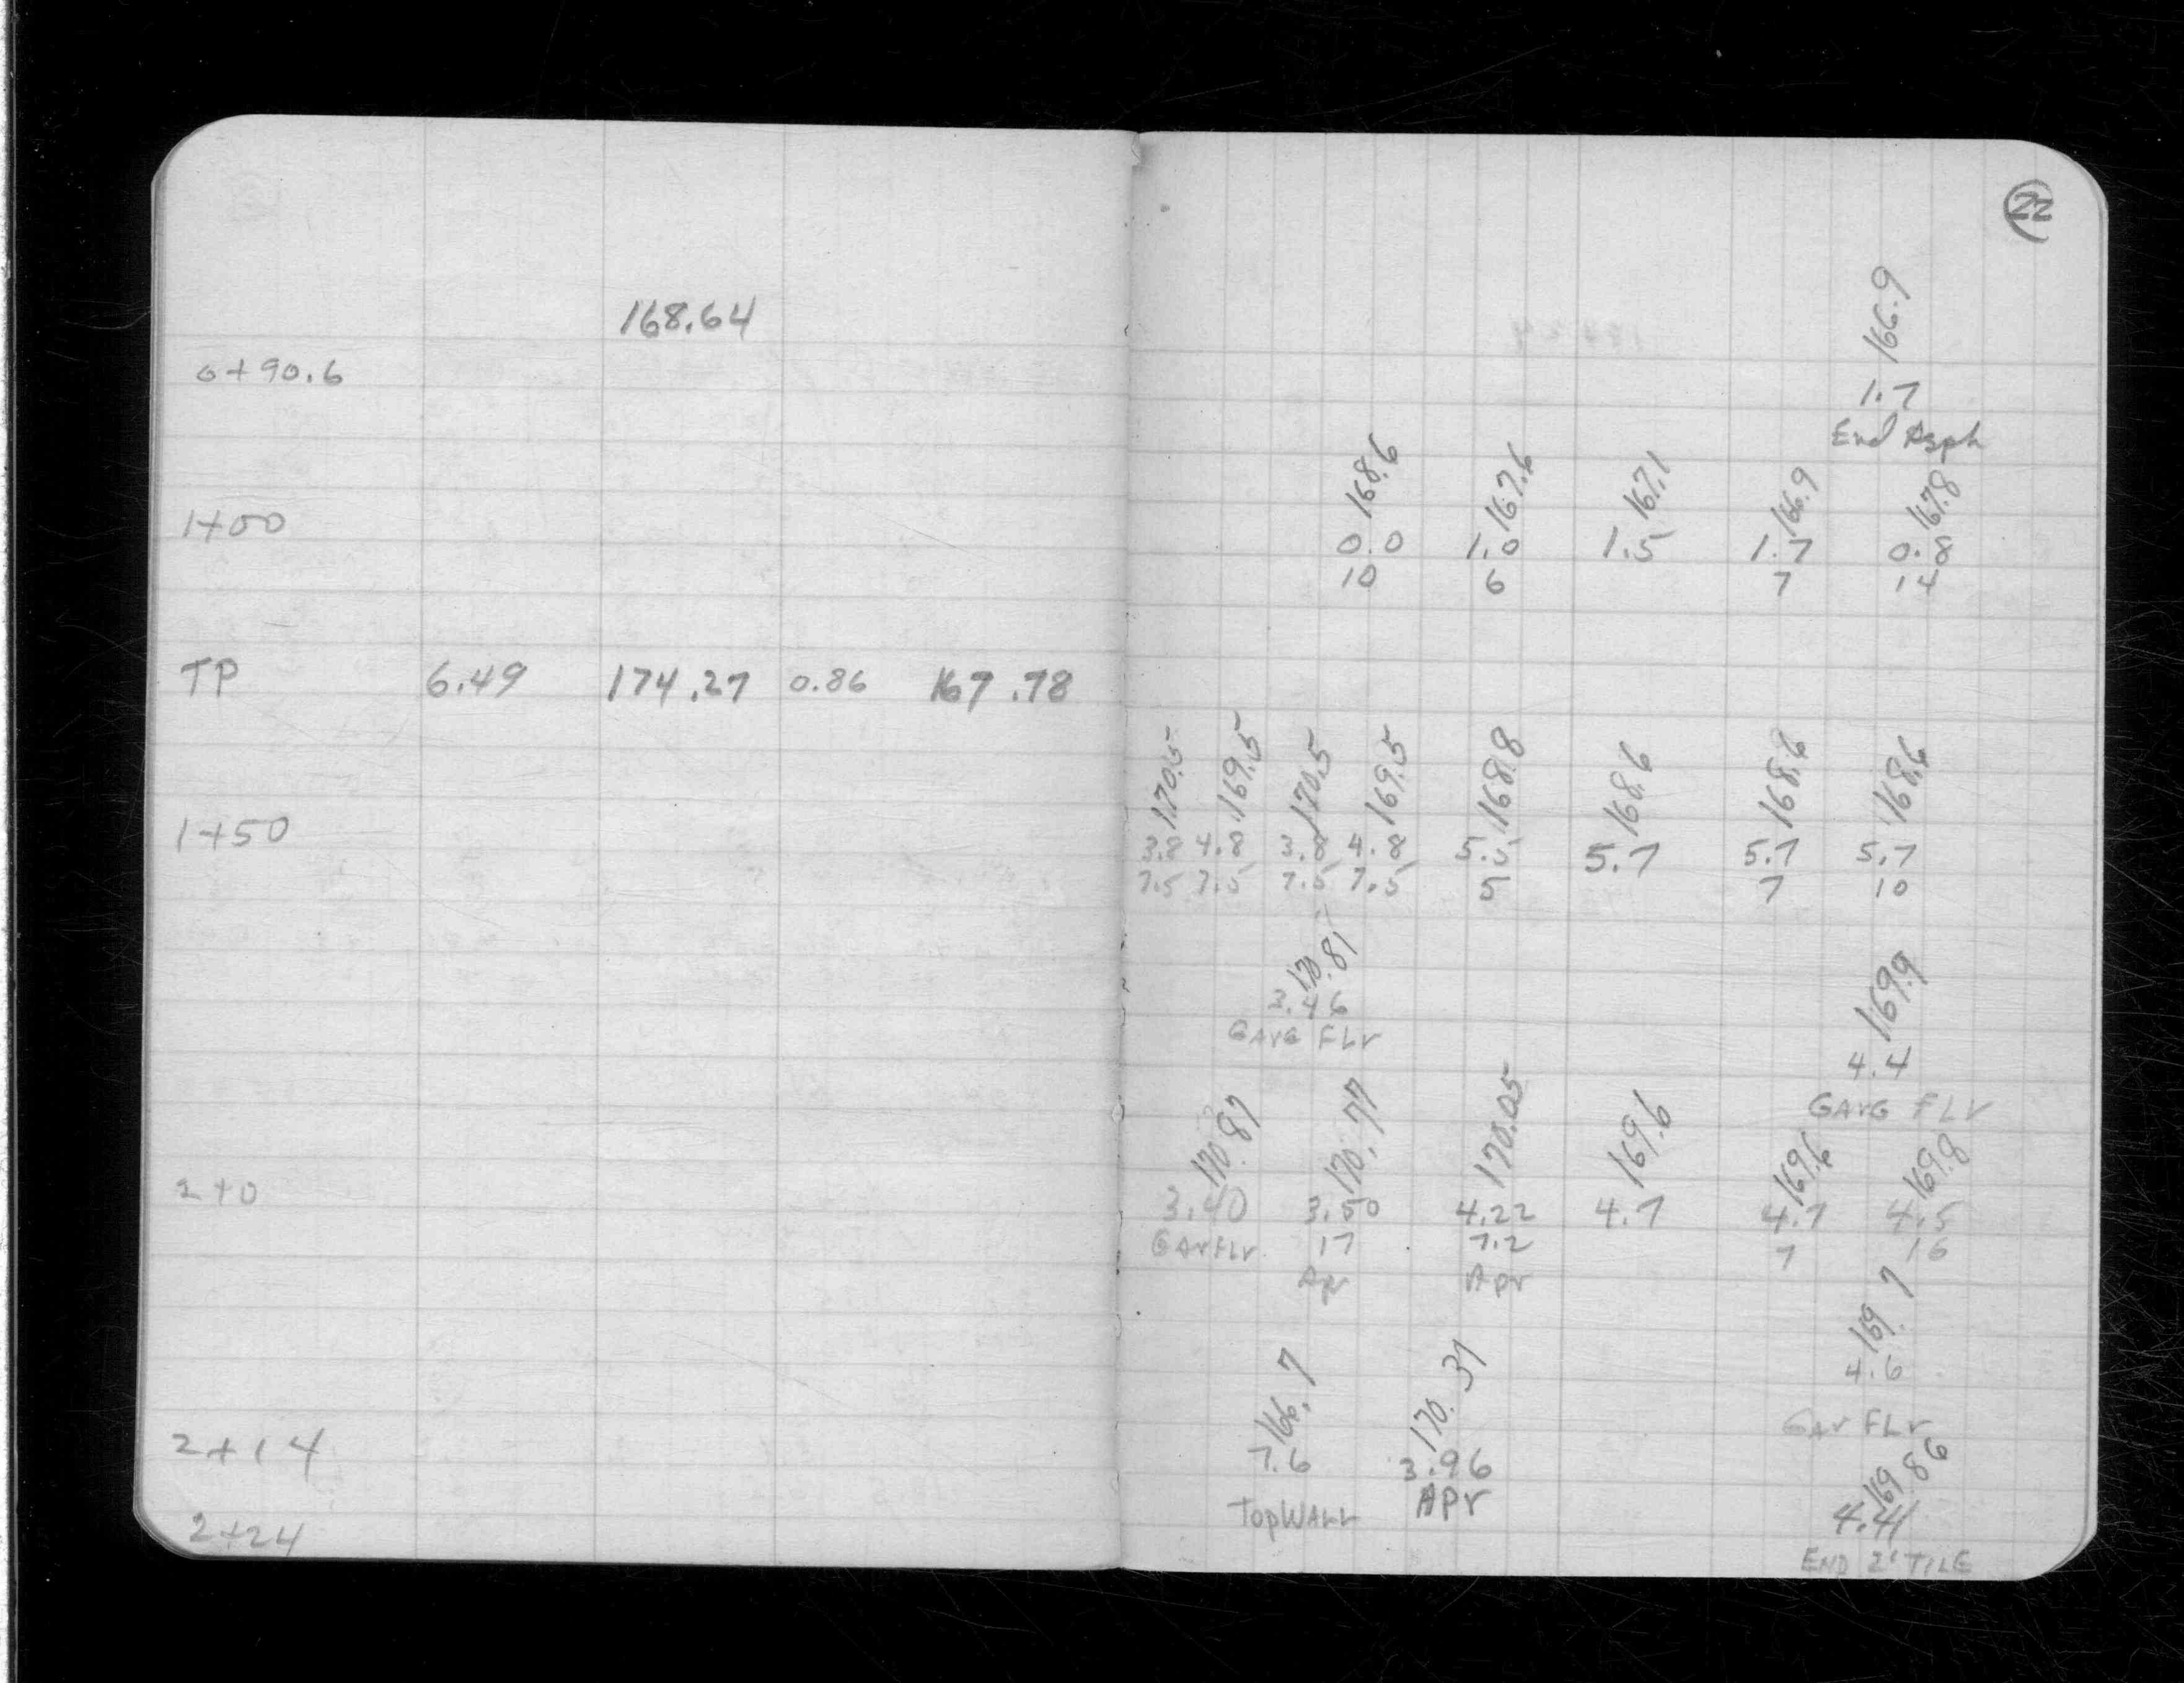 22
168.64
166.9
0+90.6
1.7
End Asph
168.6 167.6 167.1 166.9 167.8
1+00 0.0 1.0 1.5 1.7 0.8
10 6 7 14
TP 6.49 174.27 0.86 167.78
170.5 169.5 170.5 169.5 168.8 168.6 168.6 168.6
1+50 3.8 4.8 3.8 4.8 5.5 5.7 5.7 5.7
7.5 7.5 7.5 7.5 5 7 10
170.81 169.9
3.46 4.4
GArG FLr GArG FLr
170.87 170.77 170.05 169.6 169.6 169.8
2+0 3.40 3.50 4.22 4.7 4.7 4.5
GArFLr 17 7.2 7 16
Apr Apr
169.7
4.6
166.7 170.31 GAr FLr
2+14 7.6 3.96 169.86
TopWALL APr 4.41
2+24 END 2' TILE